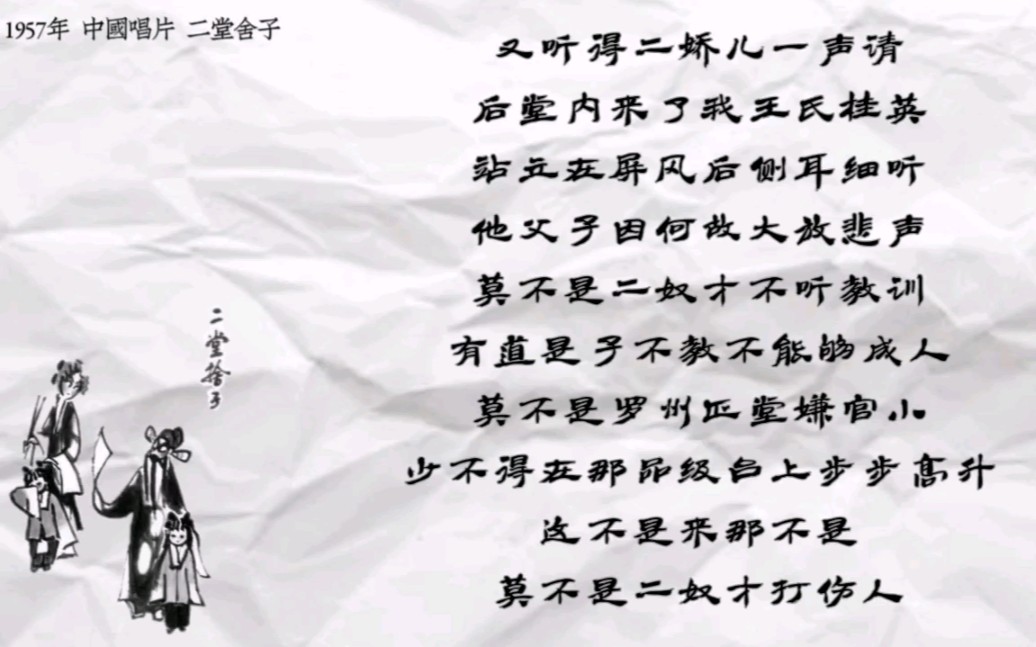 1957年 中國唱片 二堂舍子
又听得二娇儿一声请
后堂内来了我王氏桂英
站立在屏风后侧耳细听
他父子因何故大放悲声
莫不是二奴才不听教训
有道是子不教不能够成人
莫不是罗州正堂嫌官小
少不得在那品级台上步步高升
这不是来那不是
莫不是二奴才打伤人
二堂捨子